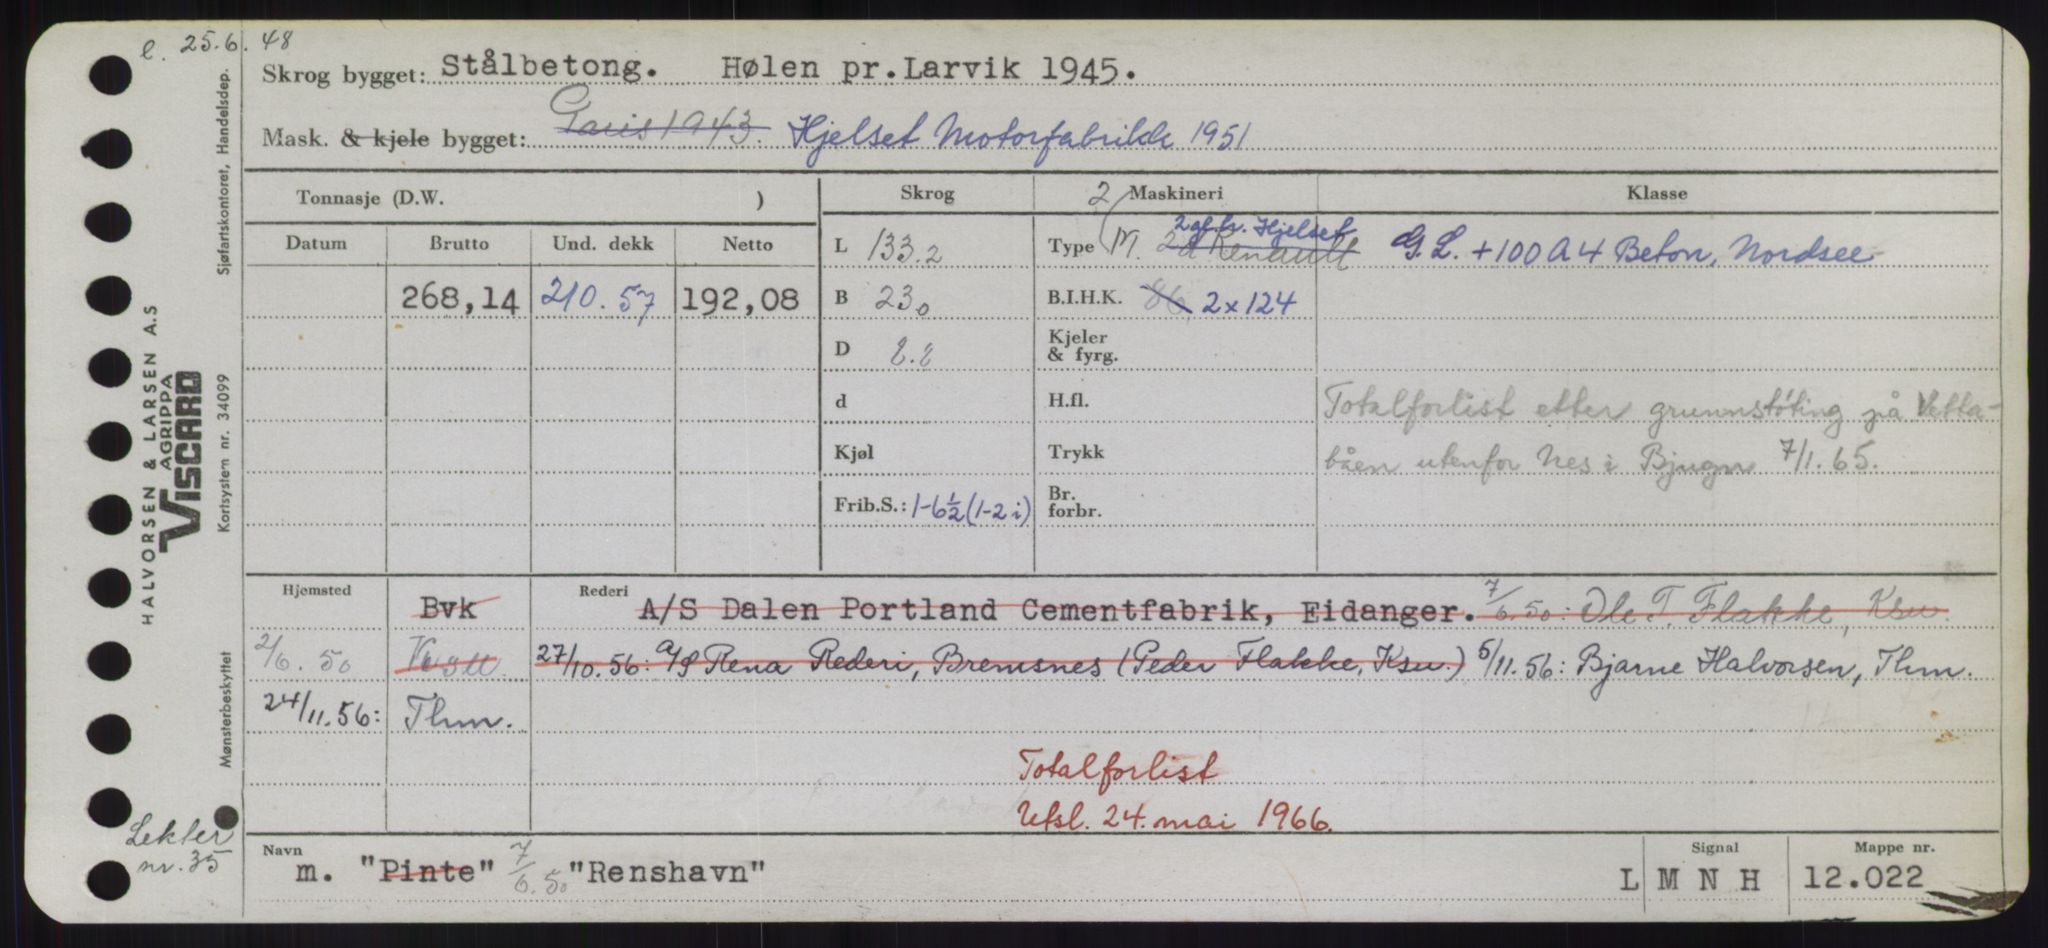 e. 25.6.48
Skrog bygget: Stålbetong. Hølen pr. Larvik 1945.
Mask. & kjele bygget: Paris 1943. Hjelset Motorfabrikk 1951
Tonnasje (D.W. )
Skrog
2 Maskineri
Klasse
Datum Brutto Und. dekk Netto
L 133.2
Type M. 2 d Renault 2 gl.hr. Hjelset
G.L. +100 A 4 Beton, Nordsee
268,14 210.57 192,08
B 23.0
B.I.H.K. 86 2 x 124
D 8.2
Kjeler & fyrg.
d
H.fl.
Totalforlist etter grunnstøting på Vetta-
Kjøl
Trykk
båen utenfor Nes i Bjugn 7/1.65.
Frib.S.: 1-6½ (1-2 i)
Br. forbr.
Hjemsted Bvk Rederi A/S Dalen Portland Cementfabrik, Eidanger. 7/6.50: Ole T. Flakke, Ksu.
2/6.50 Ksu. 27/10.56: A/S Rena Rederi, Bremsnes (Peder Flakke, Ksu.) 5/11.56: Bjarne Halvorsen, Thm.
24/11.56: Thm.
Totalforlist
Utsl. 24. mai 1966.
Navn m. "Pinte" 7/6.50 "Renshavn"
Signal L M N H
Mappe nr. 12.022
Lekter
nr. 35
HALVORSEN & LARSEN A.S
AGRIPPA
VISCARD
Sjøfartskontoret, Handelsdep.
Kortsystem nr. 34099
Mønsterbeskyttet